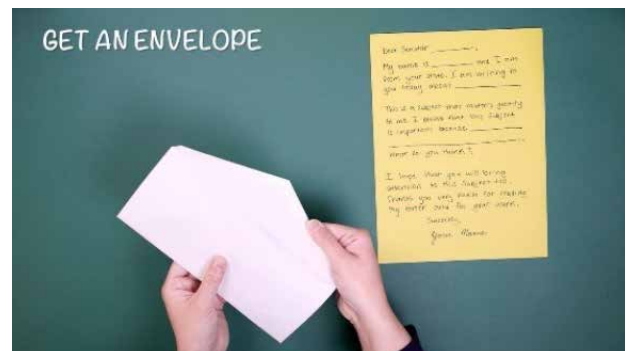 GET AN ENVELOPE
Dear Senator ________,
My name is ________ and I am
from your state. I am writing to
you today about ________
This is a subject that matters greatly
to me. I believe that this subject
is important because ________
What do you think?
I hope that you will bring
attention to this subject
Thank you very much for reading
my letter and for your work.
Sincerely,
Your Name